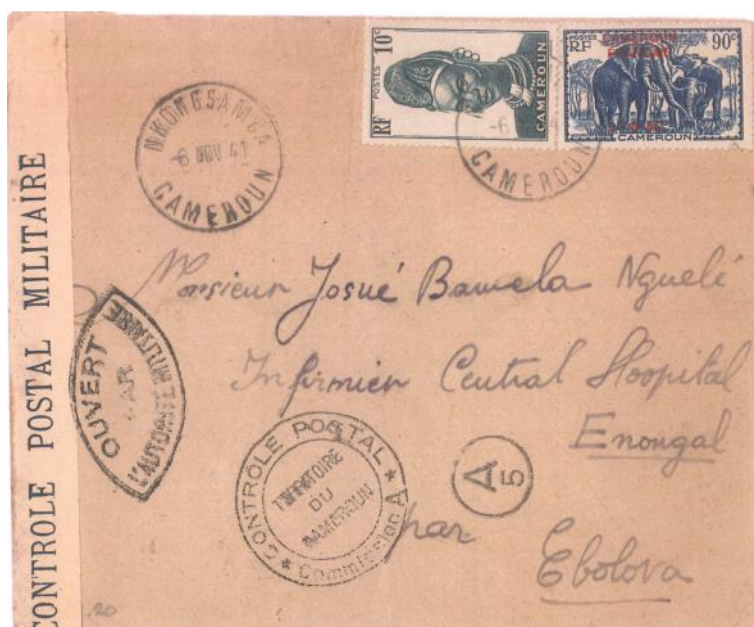 CONTROLE POSTAL MILITAIRE
POSTES 10c
RF CAMEROUN
POSTES 90c
RF
CAMEROUN
NKONGSAMBA
-6 NOV 41
CAMEROUN
-6
CAMEROUN
Monsieur Josué Bamela Nguelé
Infirmier Central Hospital
Enongal
par
Ebolova
OUVERT
PAR
L'AUTORITE MILITAIRE
CONTRÔLE POSTAL
TERRITOIRE
DU
CAMEROUN
Commission A
A
5
.20